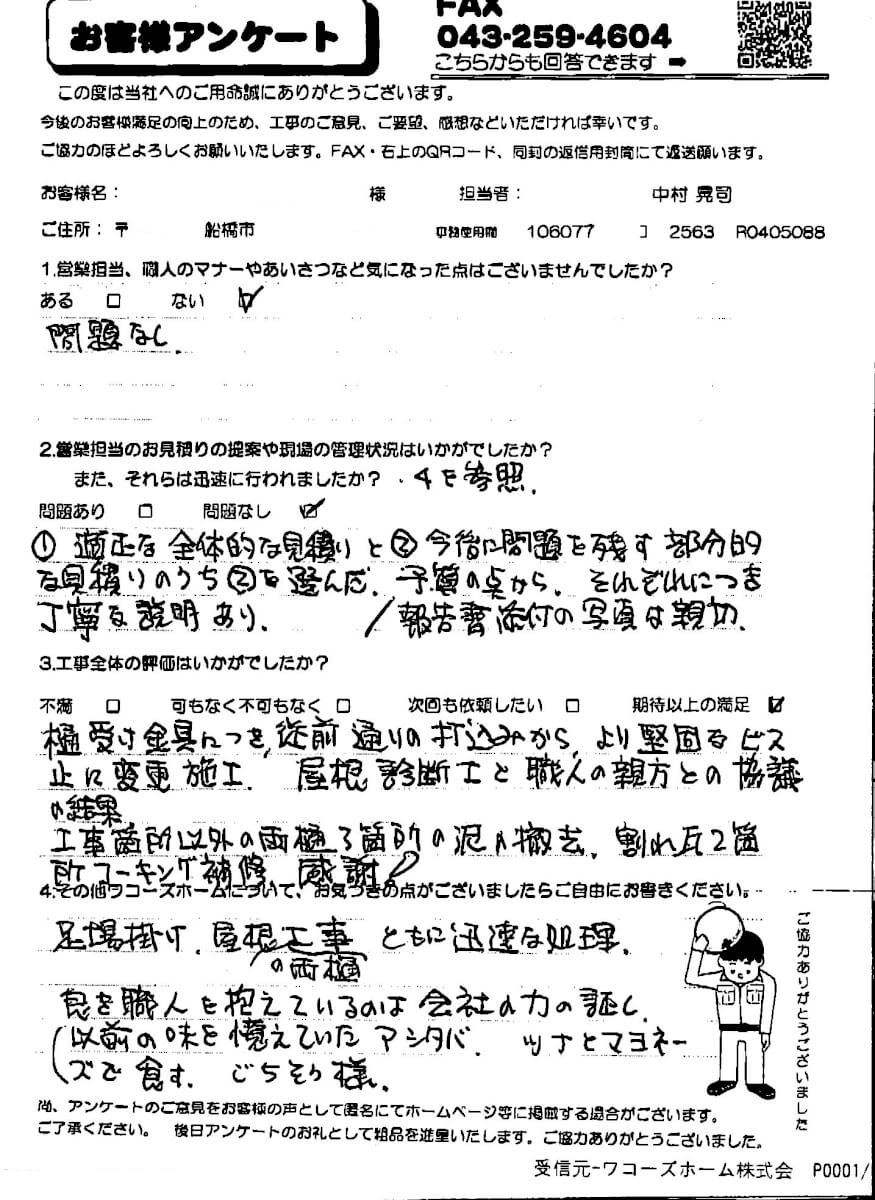 お客様アンケート
FAX
043-259-4604
こちらからも回答できます ➡
この度は当社へのご用命誠にありがとうございます。
今後のお客様満足の向上のため、工事のご意見、ご要望、感想などいただければ幸いです。
ご協力のほどよろしくお願いいたします。FAX・右上のQRコード、同封の返信用封筒にて返送願います。
お客様名： 様 担当者： 中村 晃司
ご住所：〒 船橋市 106077 2563 R0405088
1.営業担当、職人のマナーやあいさつなど気になった点はございませんでしたか？
ある □ ない ☑
問題なし.
2.営業担当のお見積りの提案や現場の管理状況はいかがでしたか？
また、それらは迅速に行われましたか？ ・4を参照.
問題あり □ 問題なし ☑
① 適正な全体的な見積りと②今後に問題を残す部分的
な見積りのうち②を選んだ. 予算の点から. それぞれにつき
丁寧な説明あり. /報告書添付の写真は親切.
3.工事全体の評価はいかがでしたか？
不満 □ 可もなく不可もなく □ 次回も依頼したい □ 期待以上の満足 ☑
樋受け金具につき,従前通りの打込みから,より堅固なビス
止に変更施工. 屋根診断士と職人の親方との協議
の結果
工事箇所以外の雨樋3箇所の泥の撤去. 割れ瓦2箇
所コーキング補修. 感謝!
4.その他ワコーズホームについて、お気づきの点がございましたらご自由にお書きください。
足場掛け.屋根工事 ともに迅速な処理.
の雨樋
良き職人を抱えているのは会社の力の証し.
(以前の味を憶えていたアシタバ. ツナとマヨネー
ズで食す. ごちそう様.
ご協力ありがとうございました
尚、アンケートのご意見をお客様の声として匿名にてホームページ等に掲載する場合がございます。
ご了承ください。 後日アンケートのお礼として粗品を進呈いたします。ご協力ありがとうございました。
受信元-ワコーズホーム株式会 P0001/